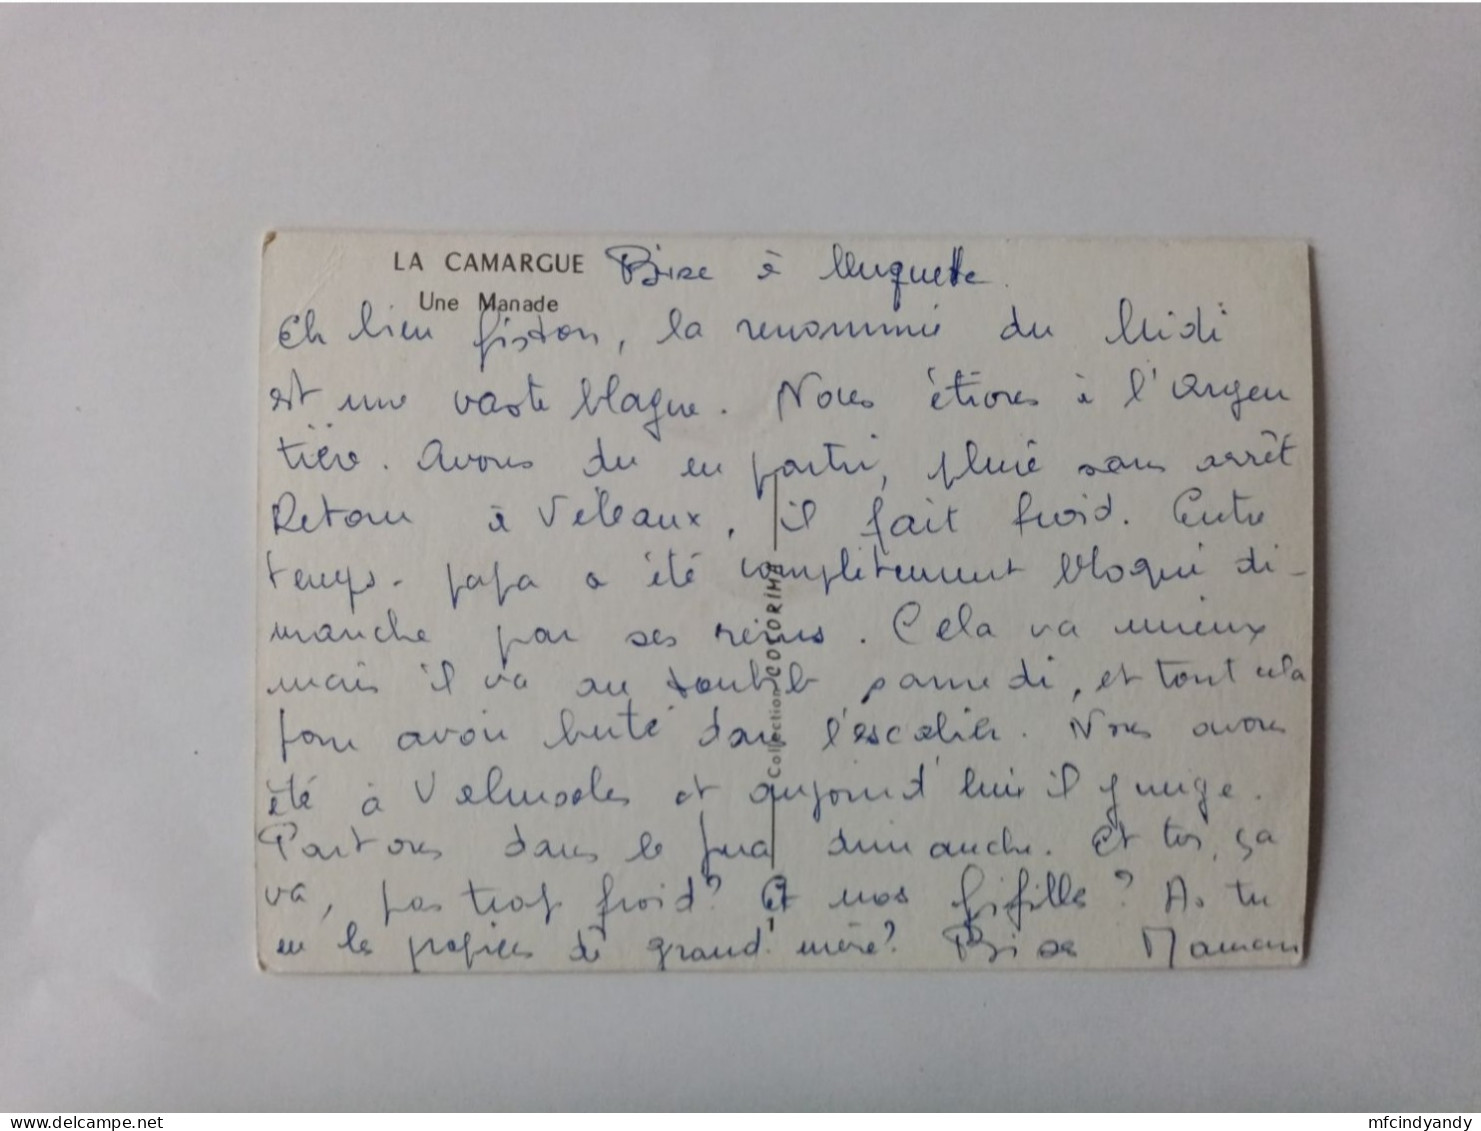 LA CAMARGUE Bise à Muquette
Une Manade
Eh bien fiston, la renommée du Midi
est une vaste blague. Nous étions à l'Argen
tière. Avons du en partir, pluie sans arrêt
Retour à , il fait froid. Entre
temps. papa a été complètement bloqué di-
manche par ses reins. Cela va mieux
mais il va au toubib samedi, et tout cela
pour avoir buté dans l'escalier. Nous avons
été à et aujourd'hui il y neige.
Partons dans le Jura dimanche. Et toi, ça
va, pas trop froid? Et nos fifilles? As tu
eu les papiers de grand'mère? Bise Maman
Collection COLORIMA
mfcindyandy
www.delcampe.net